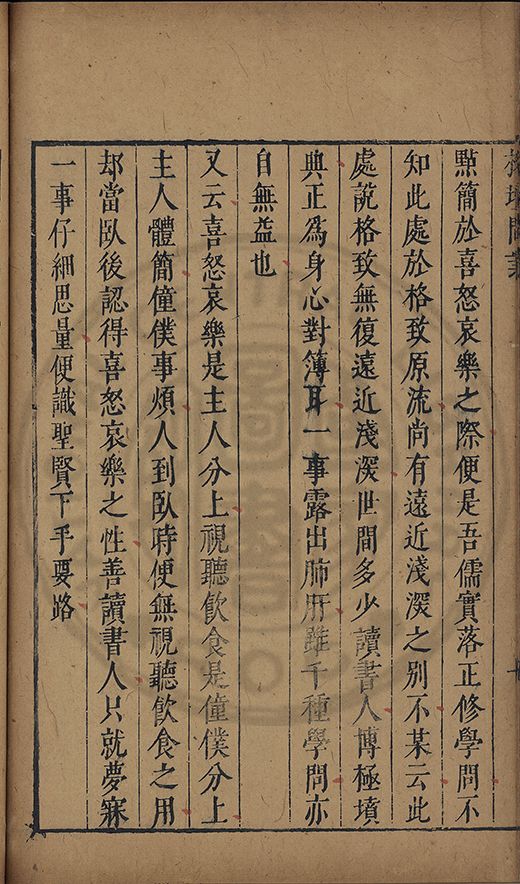 點簡於喜怒哀樂之際便是吾儒實落正修學問不
知此處於格致原流尚有遠近淺深之別不某云此
處說格致無復遠近淺深世間多少讀書人博極墳
典正為身心對簿耳一事露出肺肝雖千種學問亦
自無益也
又云喜怒哀樂是主人分上視聽飲食是僮僕分上
主人體簡僮僕事煩人到臥時便無視聽飲食之用
却當臥後認得喜怒哀樂之性善讀書人只就夢寐
一事仔細思量便識聖賢下手要路